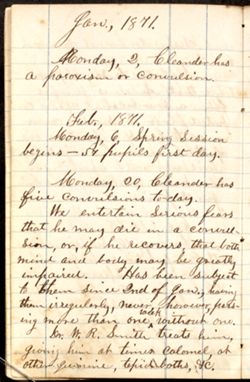 Jan., 1871.
Monday, 2, Cleander has
a paroxism or convulsion.
Feb., 1871.
Monday, 6, Spring Session
begins — 54 pupils first day.
Monday, 20, Cleander has
five convulsions to-day.
We entertain serious fears
that he may die in a convul-
sion, or, if he recovers, that both
mind and body may be greatly
impaired. Has been subject
to them since 2nd of Jan., having
them irregularly, never, however, pass-
ing more than one week without one.
Dr. W. R. Smith treats him,
giving him at times Calomel, at
others, quinine, tepid baths, &C.